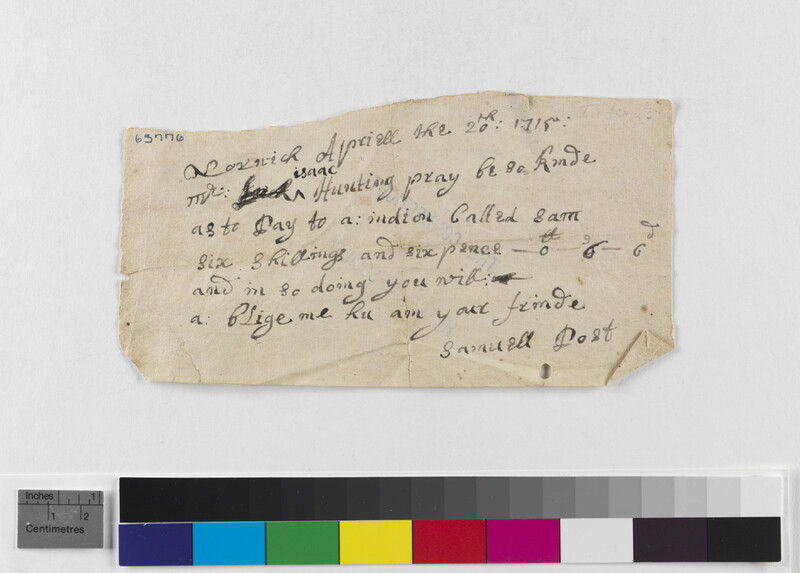 63776
Norwich Apriell the 20th: 1715:
mr: isaac Hunting pray be so kinde
as to Pay to a: indion Called Sam
six shillings and six pence — 0tt — 6s — 6d
and in so doing you will:
a: blige me hu am your frinde
Samuell Post
Inches 1
1 2
Centimetres